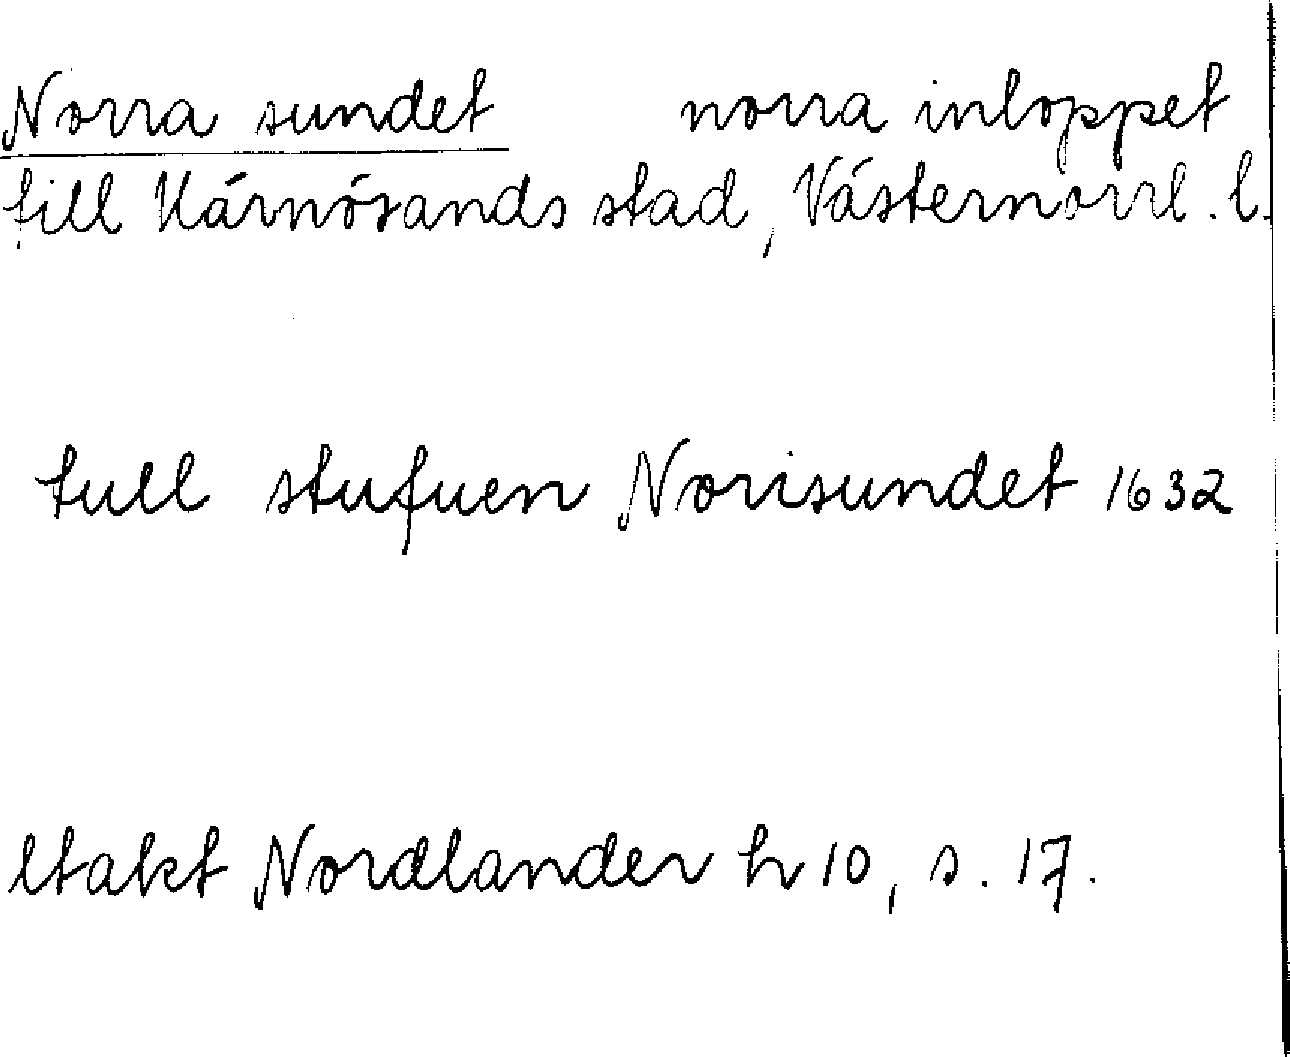 Norra sundet norra inloppet
till Härnösands stad, Västernorrl. l.
tull stufuen Norisundet 1632
Nordlander h 10, s. 17.